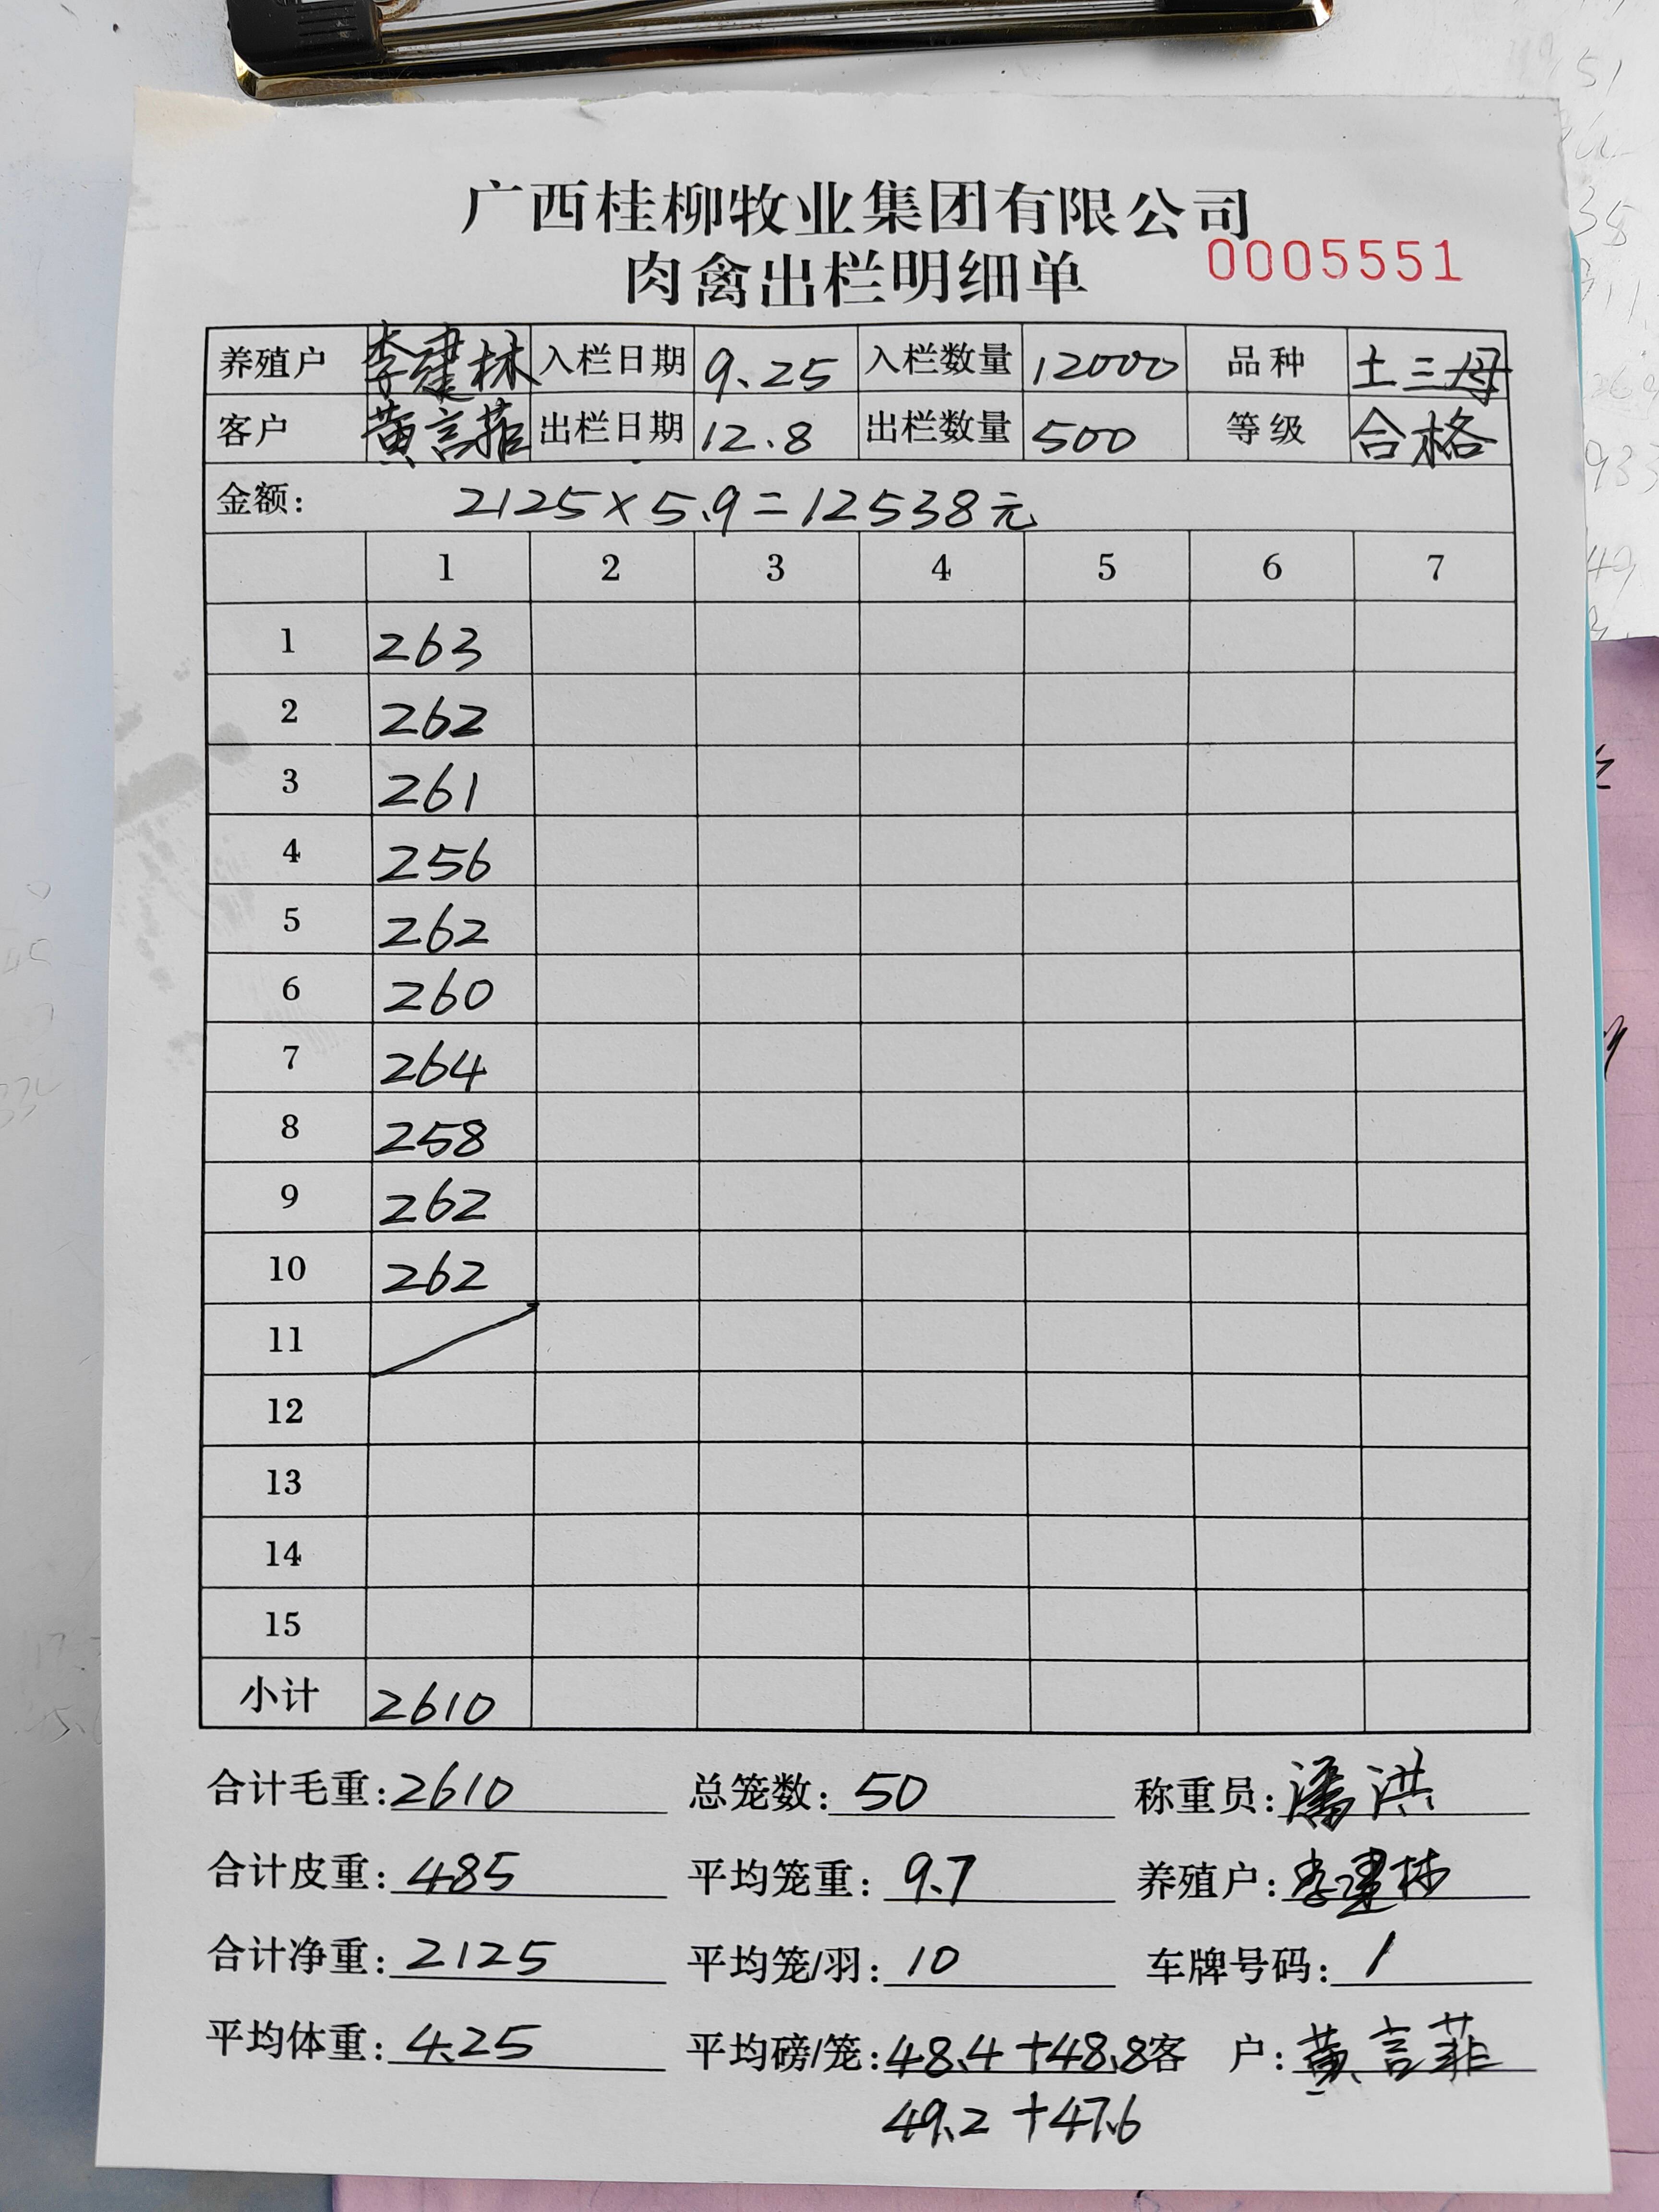 广西桂柳牧业集团有限公司
肉禽出栏明细单 0005551
养殖户 李建林 入栏日期 9.25 入栏数量 12000 品种 土三母
客户 黄言菲 出栏日期 12.8 出栏数量 500 等级 合格
金额: 2125×5.9=12538元
1 2 3 4 5 6 7
1 263
2 262
3 261
4 256
5 262
6 260
7 264
8 258
9 262
10 262
11
12
13
14
15
小计 2610
合计毛重: 2610 总笼数: 50 称重员: 潘洪
合计皮重: 485 平均笼重: 9.7 养殖户: 李建林
合计净重: 2125 平均笼/羽: 10 车牌号码: /
平均体重: 4.25 平均磅/笼: 48.4+48.8 客户: 黄言菲
49.2+47.6